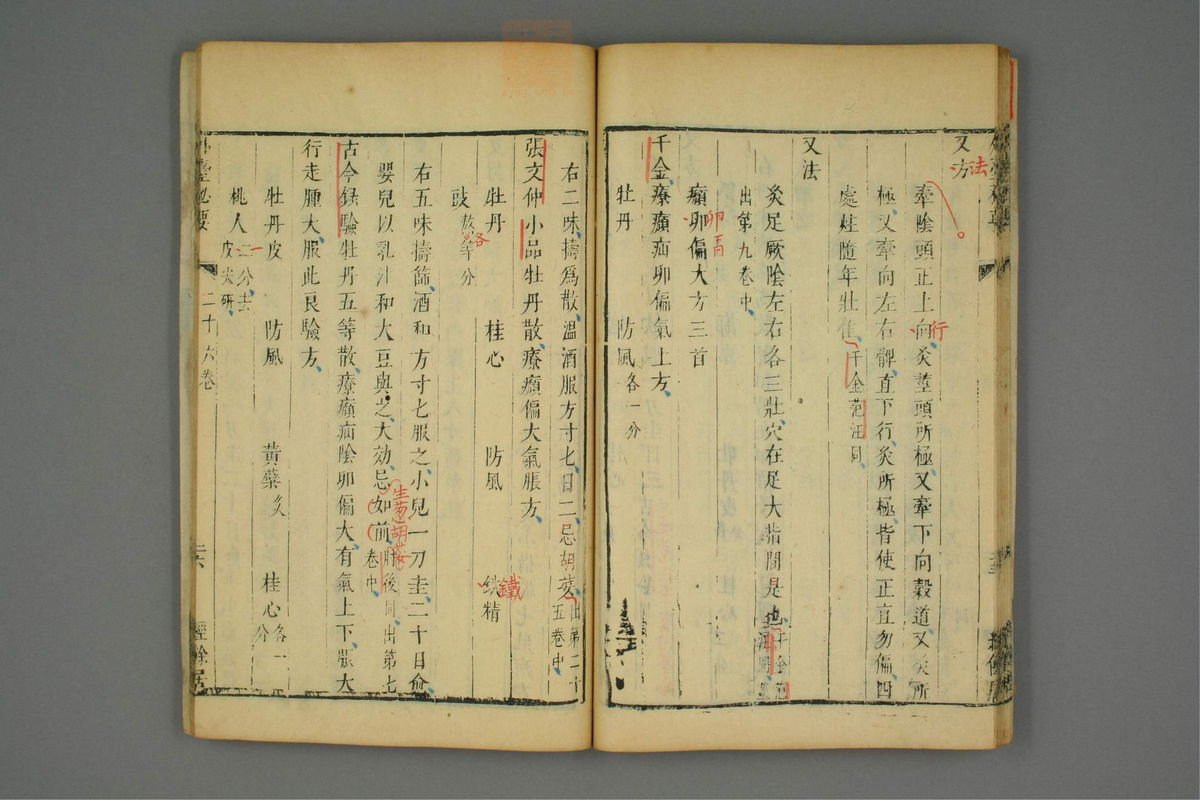 又方
法
牽陰頭正上向灸莖頭所極又牽下向穀道又灸所
行
極又牽向左右髀直下行灸所極皆使正直勿偏四
處炷隨年壯佳千金范汪同
又法
灸足厥陰左右各三壯穴在足大指間是也千金范
出第九卷中
㿗卵偏大方三首
千金療㿗疝卵偏氣上方
牡丹 防風各一分
右二味擣為散溫酒服方寸匕日二忌胡荽出第二十
五卷中
張文仲小品牡丹散療㿗偏大氣脹方
牡丹 桂心 防風 鐵精
鐵
豉熬等分
各
右五味擣篩酒和方寸匕服之小兒一刀圭二十日愈
嬰兒以乳汁和大豆與之大効忌如前肘後同出第七
卷中
生葱胡荽
古今錄驗牡丹五等散療㿗疝陰卵偏大有氣上下脹大
行走腫大服此良驗方
牡丹皮 防風 黃蘗炙 桂心各一
分
桃人二分去
皮尖研
一
外臺秘要 二十六卷 三六 經餘居